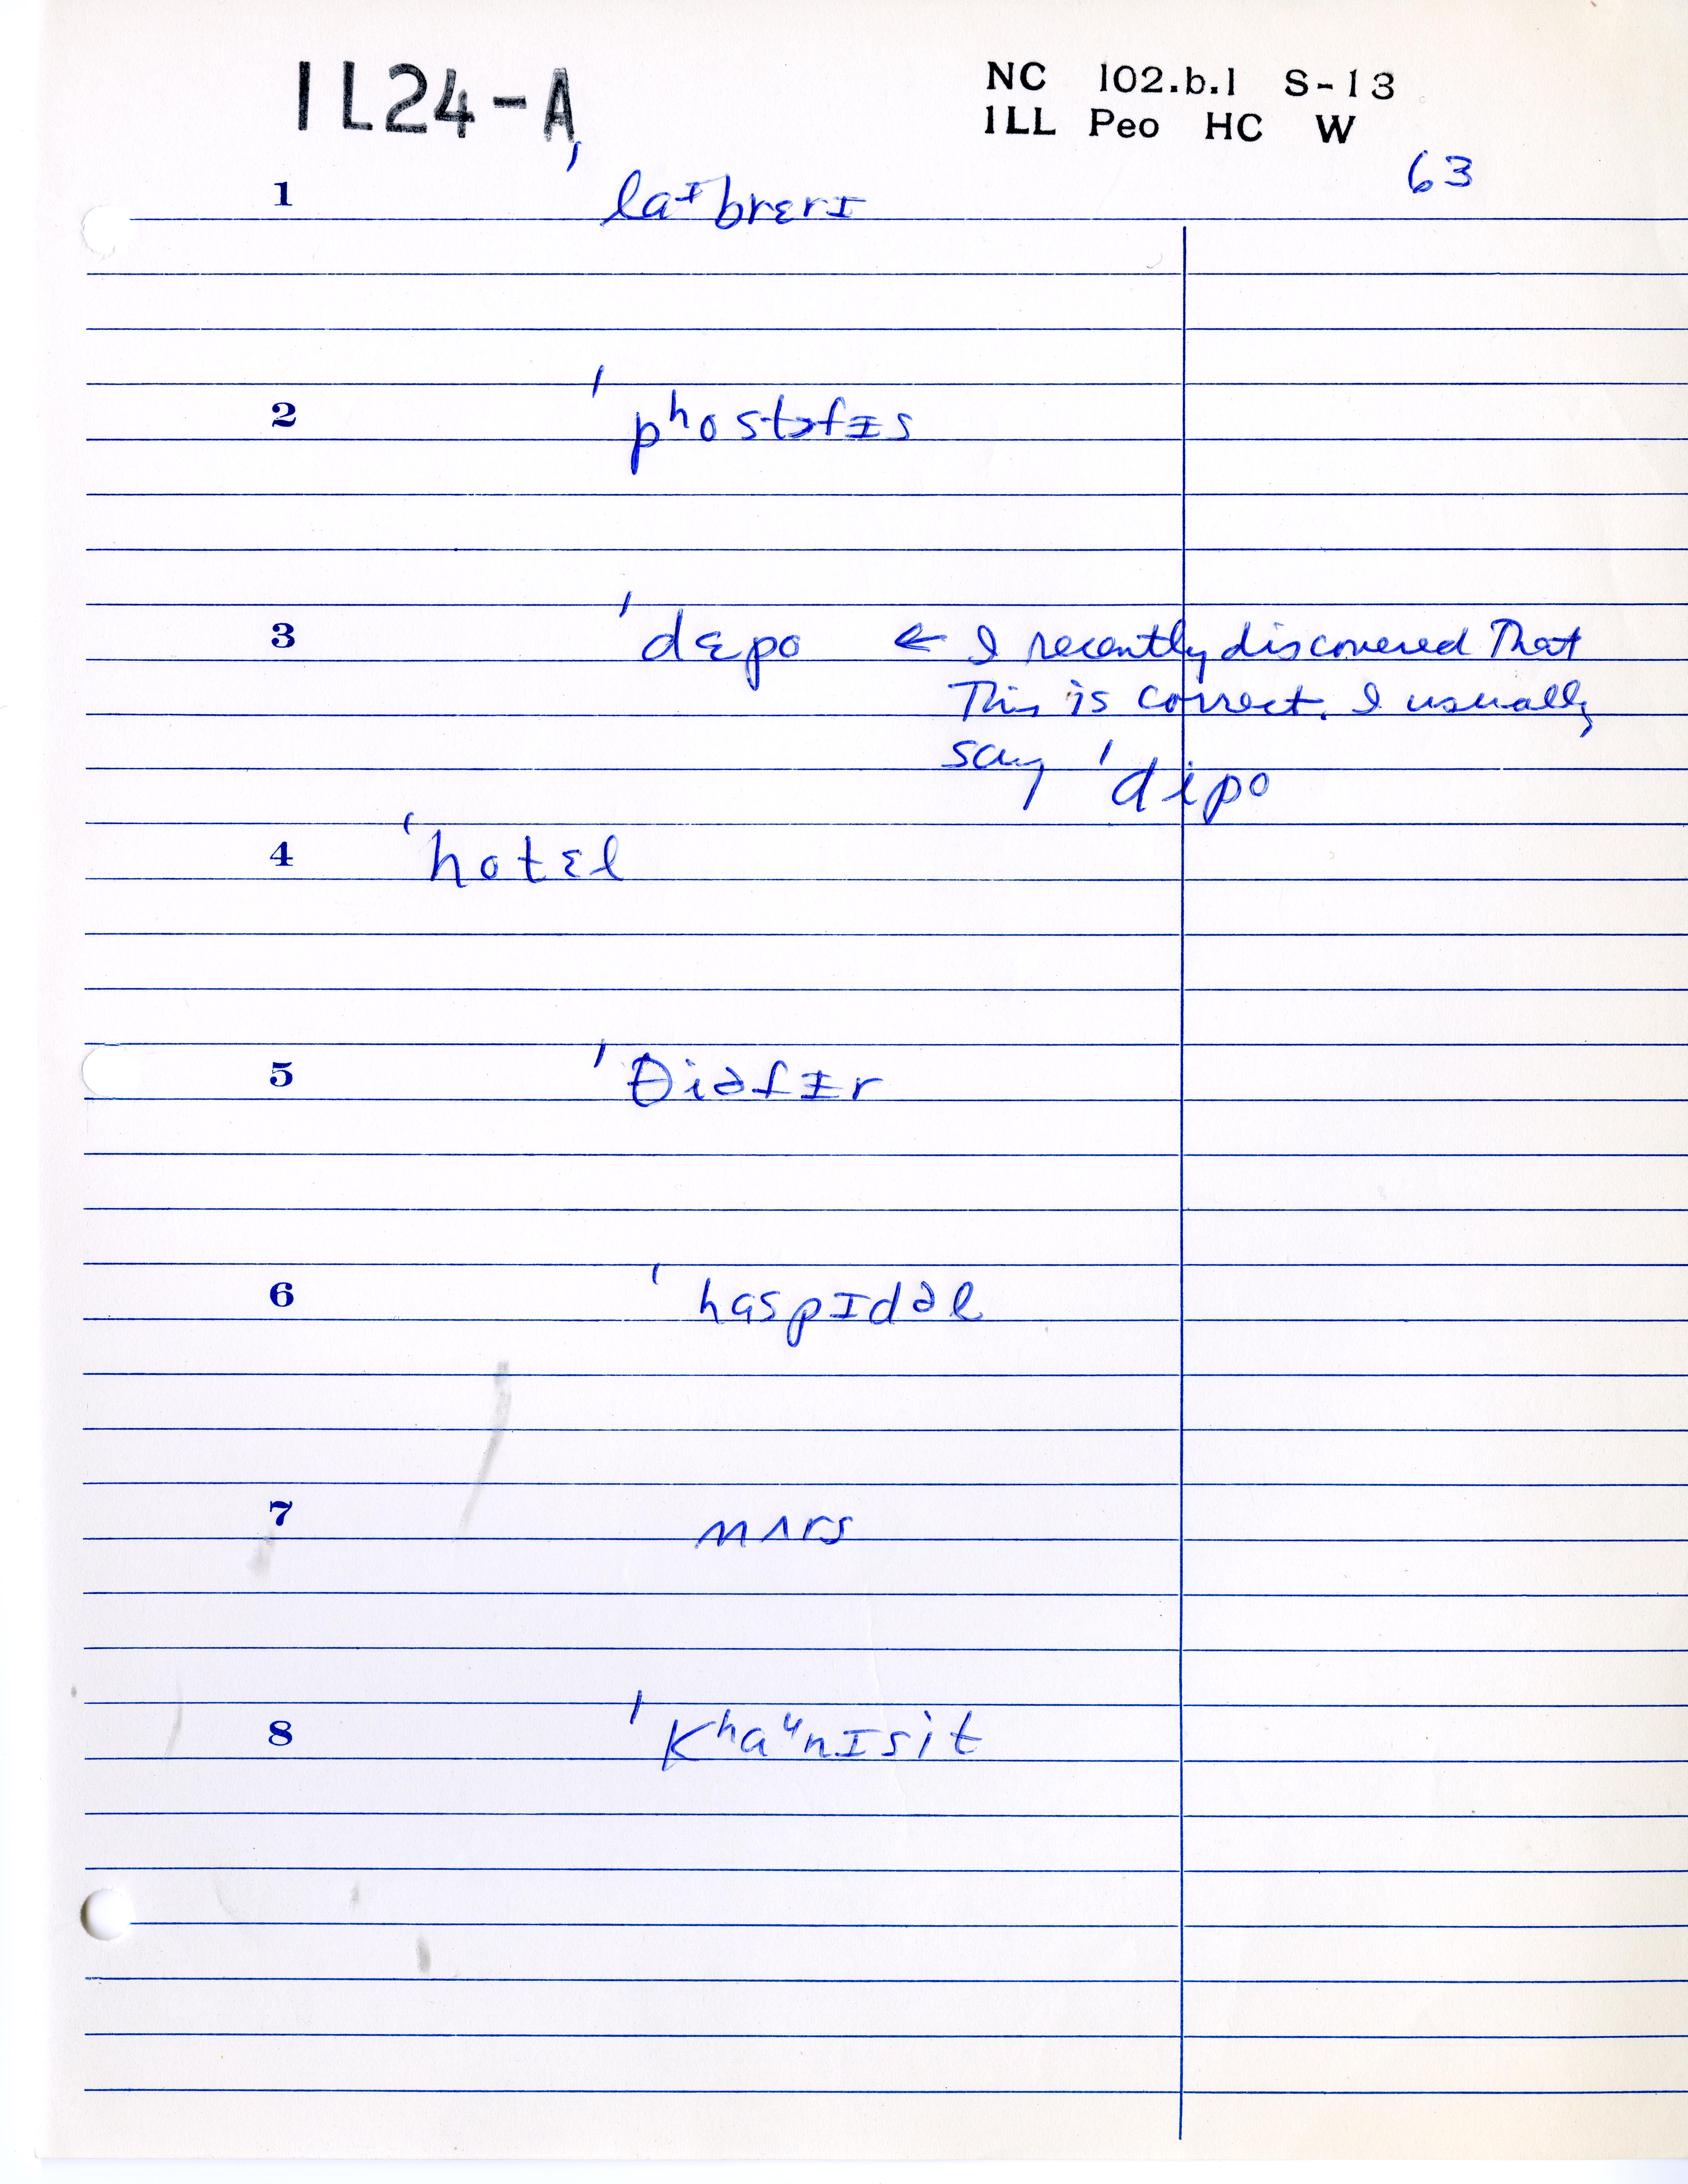 IL24-A
NC 102.b.1 S-13
ILL Peo HC W
63
1 ˈlaᴵbrɛrɪ
2 ˈpʰostɔfɪs
3 ˈdɛpo ← I recently discovered That
This is correct. I usually
say ˈdipo
4 ˈhotɛl
5 ˈθiəfɪr
6 ˈhaspɪdəl
7 mʌrs
8 ˈKʰaᵘnɪsit